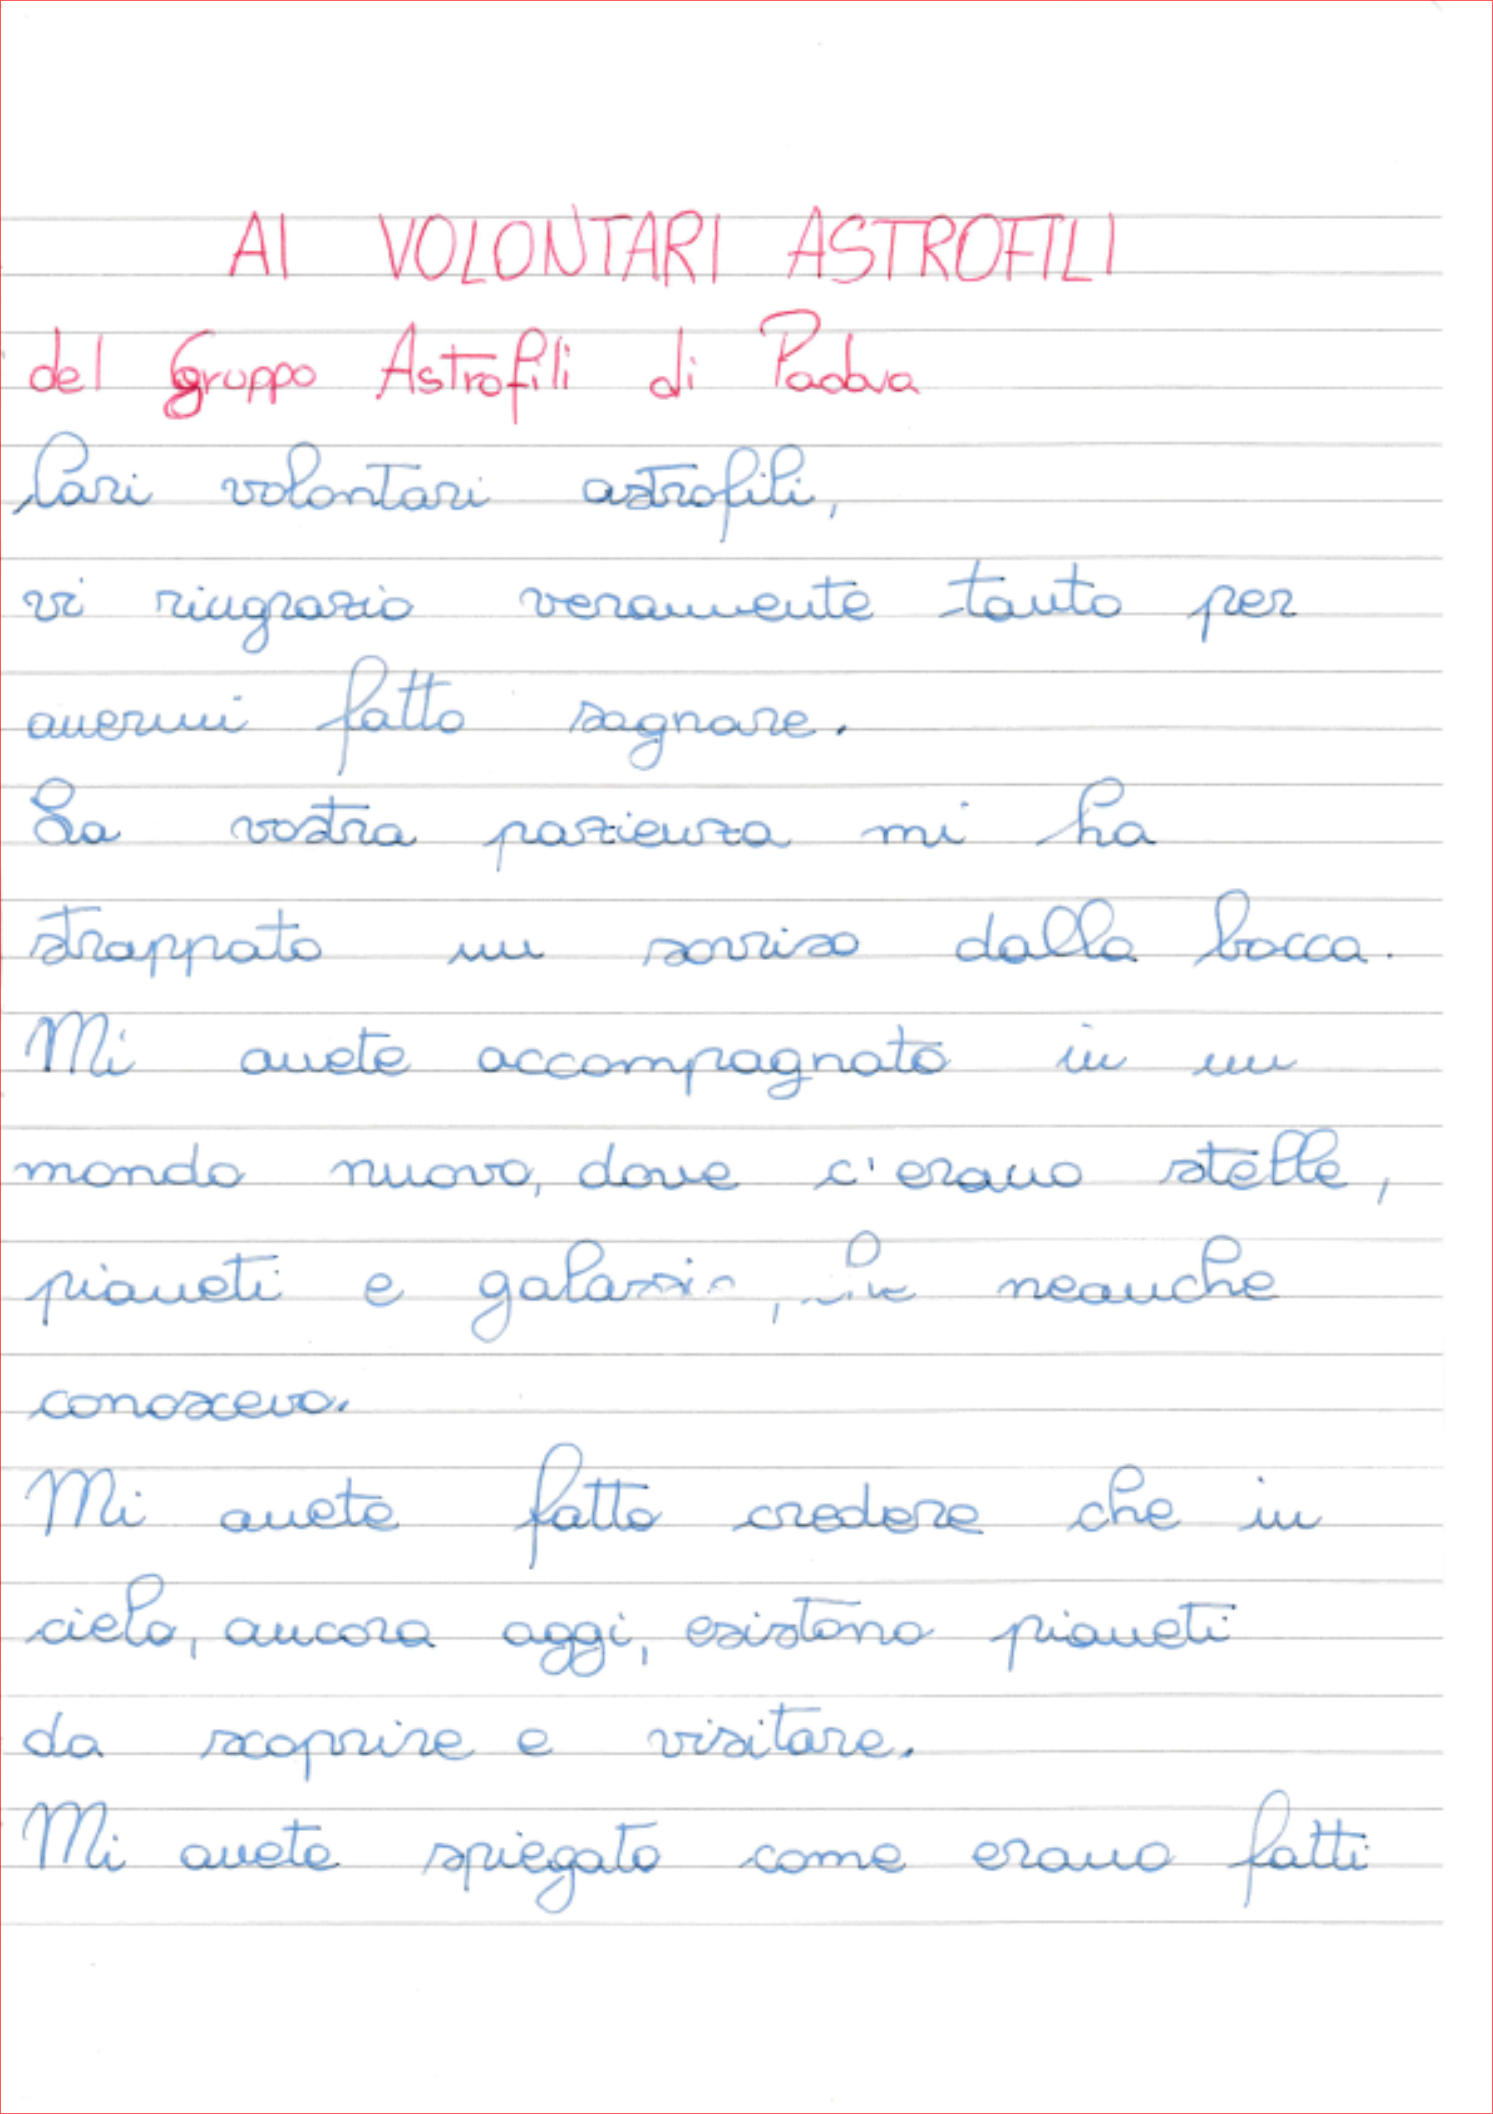 AI VOLONTARI ASTROFILI
del Gruppo Astrofili di Padova
Cari volontari astrofili,
vi ringrazio veramente tanto per
avermi fatto sognare.
La vostra pazienza mi ha
strappato un sorriso dalla bocca.
Mi avete accompagnato in un
mondo nuovo, dove c'erano stelle,
pianeti e galassie, neanche
conoscevo.
Mi avete fatto credere che in
cielo, ancora oggi, esistono pianeti
da scoprire e visitare.
Mi avete spiegato come erano fatti